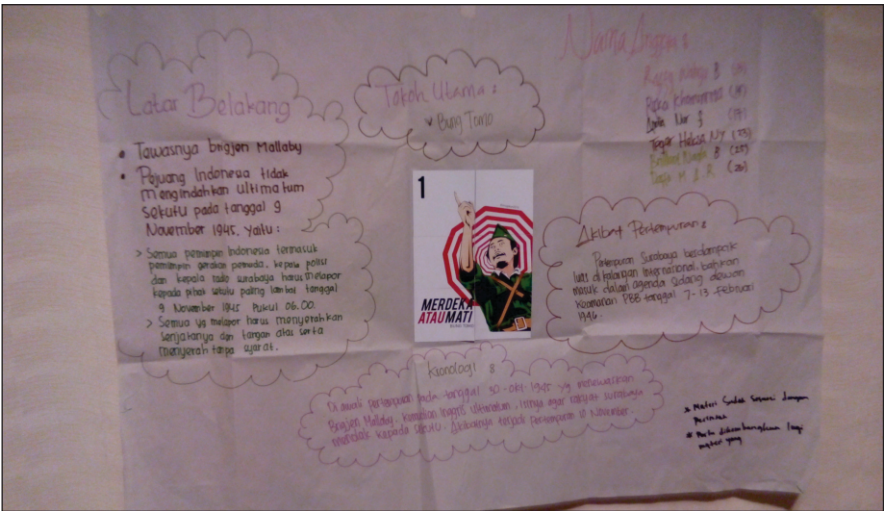 Latar Belakang
• Tewasnya brigjen Mallaby
• Pejuang Indonesia tidak
mengindahkan ultimatum
sekutu pada tanggal 9
November 1945. Yaitu :
> Semua pemimpin Indonesia termasuk
pemimpin gerakan pemuda, kepala polisi
dan kepala radio surabaya harus melapor
kepada pihak sekutu paling lambat tanggal
9 November 1945 Pukul 06.00.
> Semua yg melapor harus menyerahkan
Senjatanya dgn tangan atas serta
menyerah tanpa syarat.
Tokoh Utama :
Bung Tomo
1
MERDEKA
ATAU MATI
BUNG TOMO
Nama Anggota :
B
Rizka
Nur
Tegar NY (23)
B (25)
M. R. (26)
Akibat Pertempuran :
Pertempuran Surabaya berdampak
luas di kalangan Internasional. bahkan
masuk dalam agenda Sidang dewan
Keamanan PBB tanggal 7-13 Februari
1946.
Kronologi :
Di awali pertempuran pada tanggal 30-okt-1945 yg menewaskan
Brigjen Mallaby. kemudian Inggris ultimatum, Isinya agar rakyat surabaya
kepada sekutu. Akibatnya terjadi Pertempuran 10 November.
Materi Sudah Sesuai dengan
Perlu dikembangkan lagi
materi yang